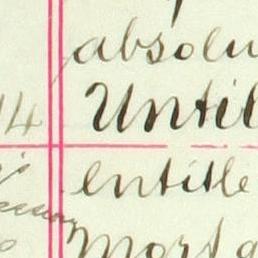 absolu
14 Until
entitle
mortg